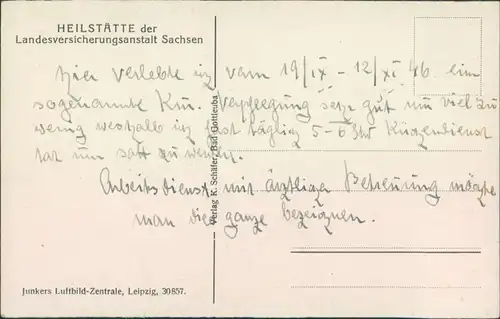 HEILSTÄTTE der
Landesversicherungsanstalt Sachsen
Hier verlebte ich vom 19/IX - 12/XI 46 eine
sogenannte Kur. Verpflegung sehr gut nur viel zu
wenig weshalb ich fast täglich 5-6 Std Küchendienst
tat um satt zu werden.
Arbeitsdienst mit ärztlicher Betreuung möchte
man dies ganze bezeichnen.
Verlag K. Schäfer, Bad Gottleuba
Junkers Luftbild-Zentrale, Leipzig, 30857.